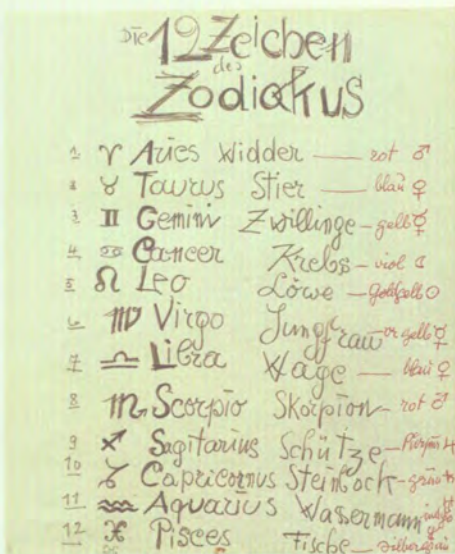 Die 12 Zeichen
des
Zodiakus
1 ♈ Aries Widder — rot ♂
2 ♉ Taurus Stier — blau ♀
3 ♊ Gemini Zwillinge — gelb ☿
4 ♋ Cancer Krebs — viol ☾
5 ♌ Leo Löwe — goldgelb ☉
6 ♍ Virgo Jungfrau — or gelb ☿
7 ♎ Libra Wage — blau ♀
8 ♏ Scorpio Skorpion — rot ♂
9 ♐ Sagitarius Schütze — Purpur ♃
10 ♑ Capricornus Steinbock — grün ♄
11 ♒ Aquarius Wassermann
12 ♓ Pisces Fische — silbergrau